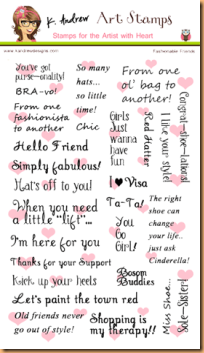 K. Andrew Art Stamps
Stamps for the Artist with Heart
www.kandrewdesigns.com
Fashionable Friends
You've got
purse-onality!
BRA-vo!
From one
fashionista
to another
So many
hats...
so little
time!
Chic
From one
ol' bag to
another!
Girls
Just
wanna
have
Sun
Red Hatter
I like your style!
Congrat-shoe-lations!
Hello Friend
Simply fabulous!
Hat's off to you!
I Visa
When you need
a little "lift"...
Ta-Ta!
You
Go
Girl!
The right
shoe can
change
your life...
just ask
Cinderella!
I'm here for you
Thanks for your Support
Kick up your heels
Bosom
Buddies
Let's paint the town red
Old friends never
go out of style!
Shopping is
my therapy!!
Miss Shoe...
Sole-Sister!